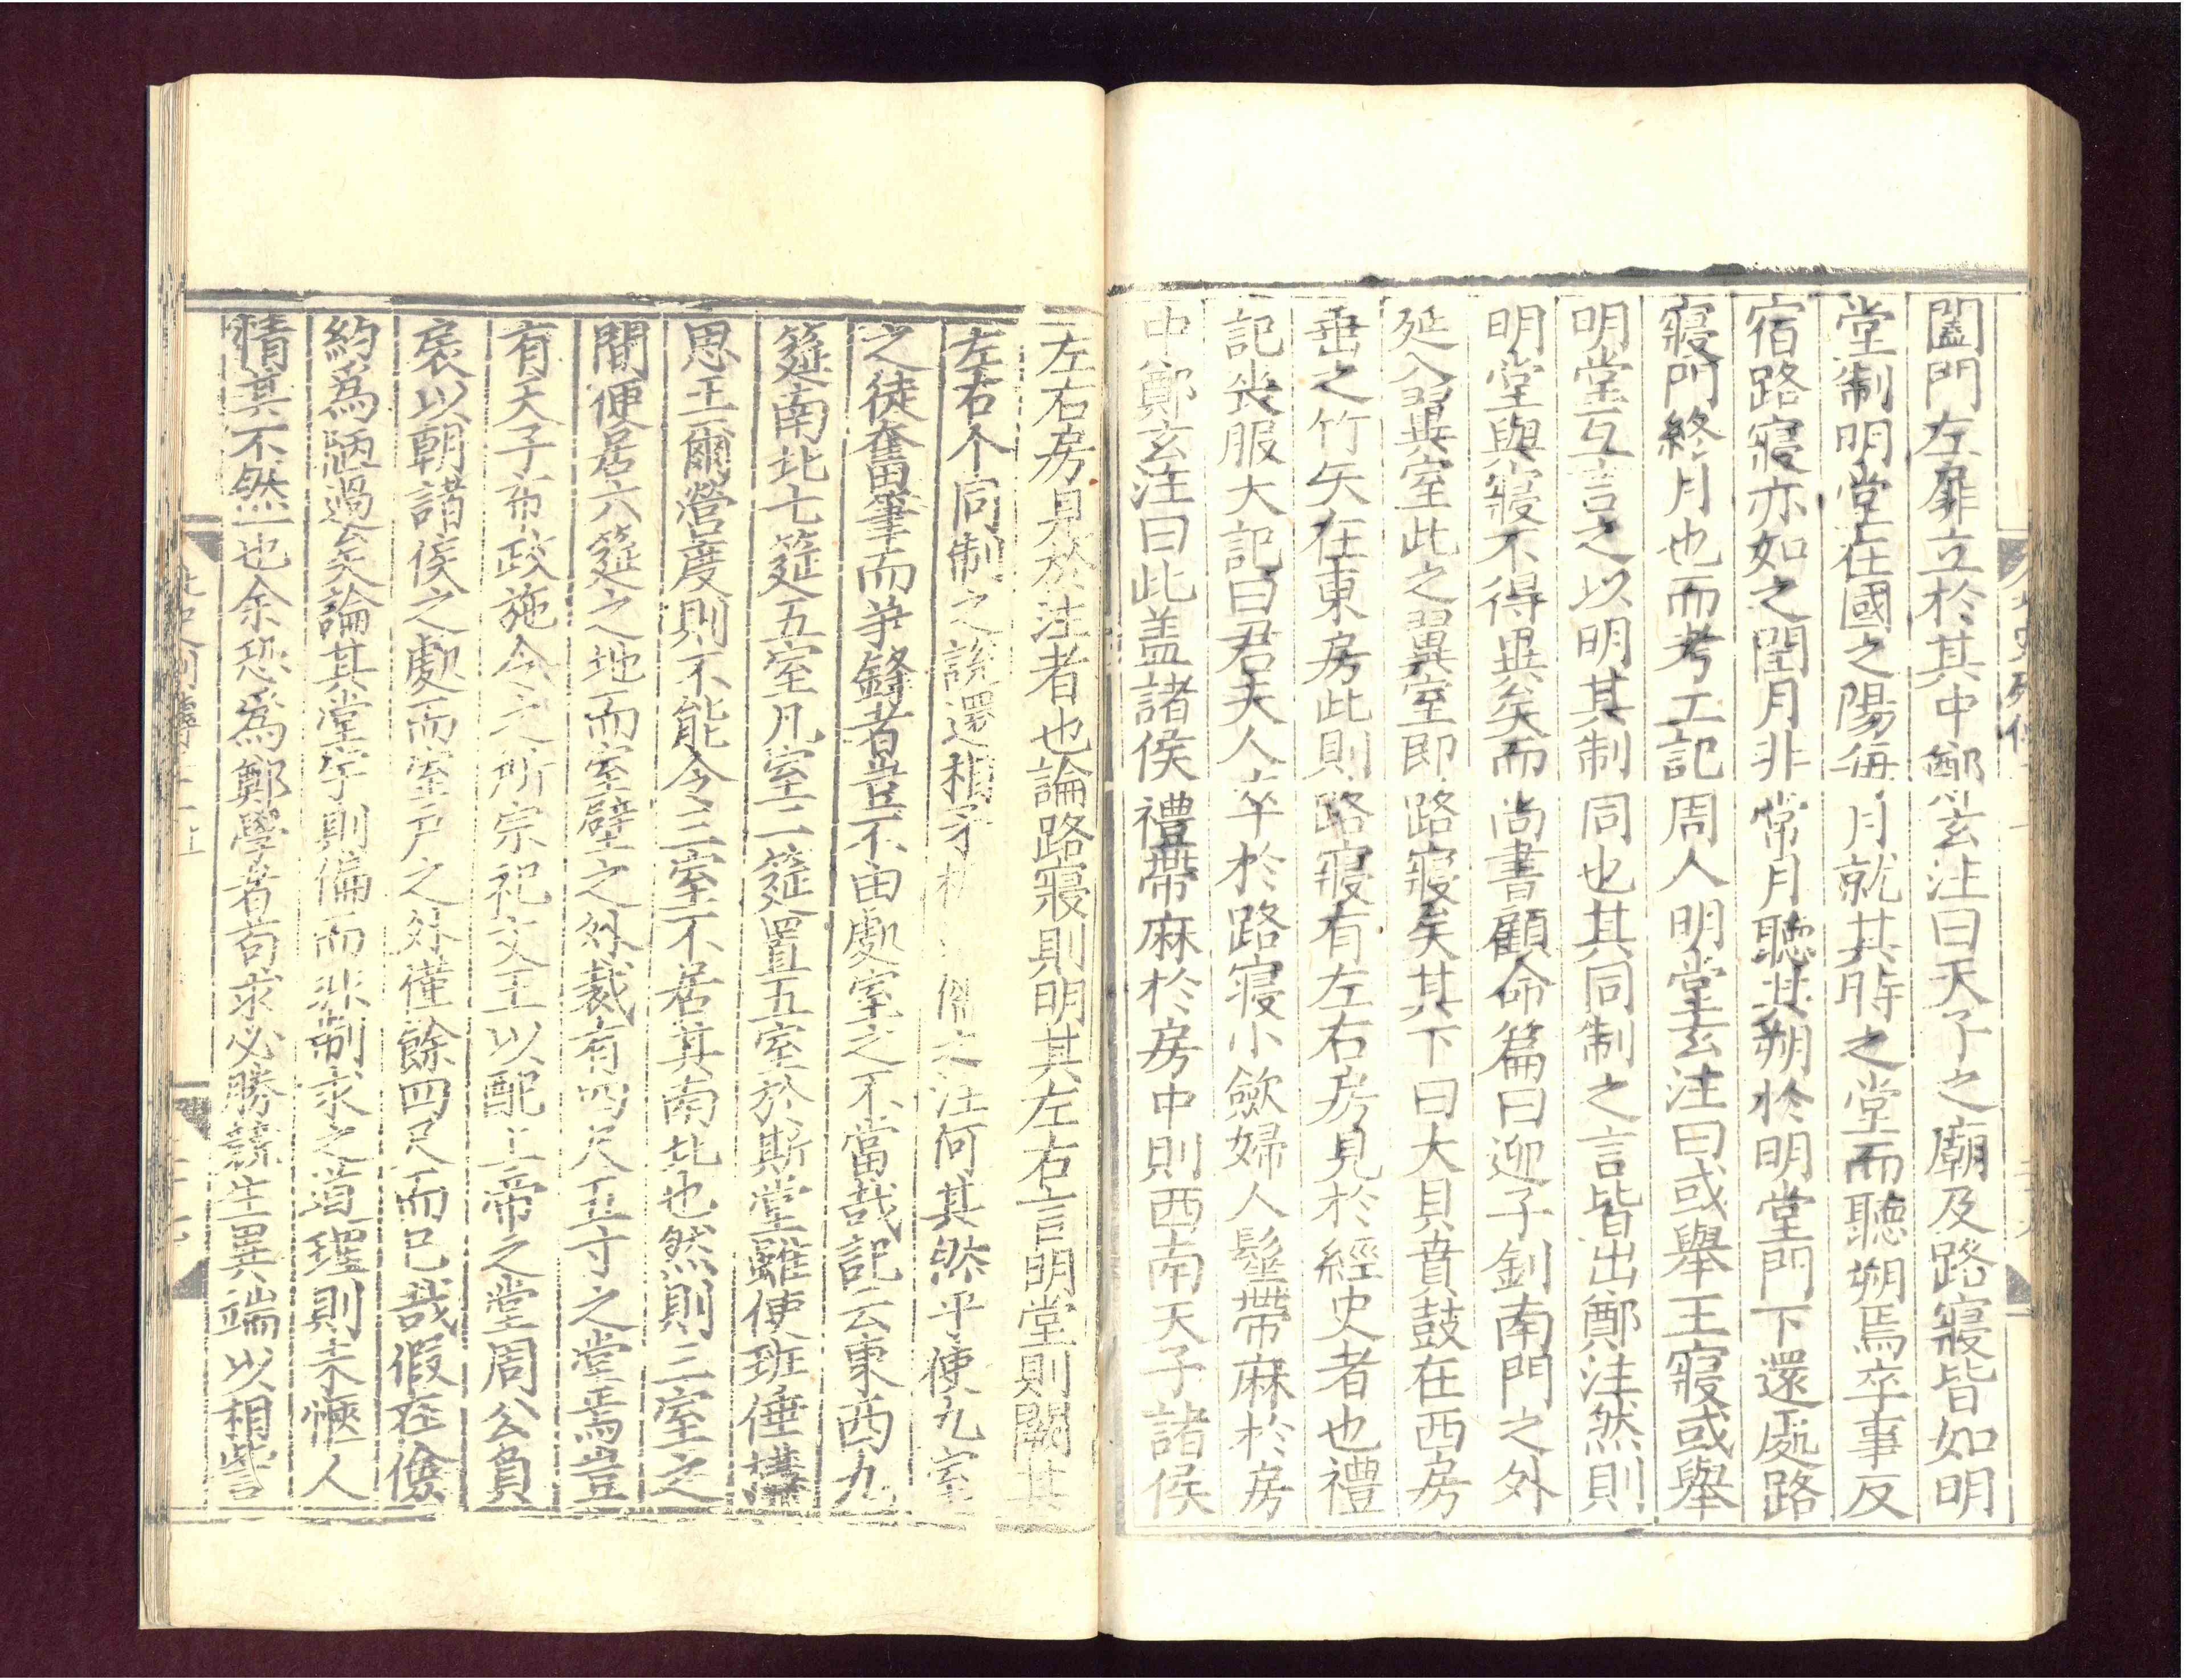 闔門左扉立於其中鄭玄注曰天子之廟及路寢皆如明
堂制明堂在國之陽每月就其時之堂而聽朔焉卒事反
宿路寢亦如之閏月非常月聽其朔於明堂門下還處路
寢門終月也而考工記周人明堂玄注曰或舉王寢或舉
明堂互言之以明其制同也其同制之言皆出鄭注然則
明堂與寢不得異矣而尚書顧命篇曰迎子釗南門之外
延入翼室此之翼室即路寢矣其下曰大貝賁鼓在西房
垂之竹矢在東房此則路寢有左右房見於經史者也禮
記喪服大記曰君夫人卒於路寢小斂婦人髽帶麻於房
中鄭玄注曰此盖諸侯禮帶麻於房中則西南天子諸侯
左右房見於注者也論路寢則明其左右言明堂則闕其
左右个同制之說還相矛 儒之注何其然乎使九室
之徒奮筆而爭鋒者豈不由處室之不當哉記云東西九
筵南北七筵五室凡室二筵置五室於斯堂雖使班倕構
思王爾營度則不能令三室不居其南北也然則三室之
間便居六筵之地而室壁之外裁有四尺五寸之堂焉豈
有天子布政施令之所宗祀文王以配上帝之堂周公負
扆以朝諸侯之處而室戶之外僅餘四尺而已哉假在儉
約爲陋過矣論其堂宇則偏而非制求之道理則未愜人
情其不然一也余恐爲鄭學者苟求必勝競生異端以相訾